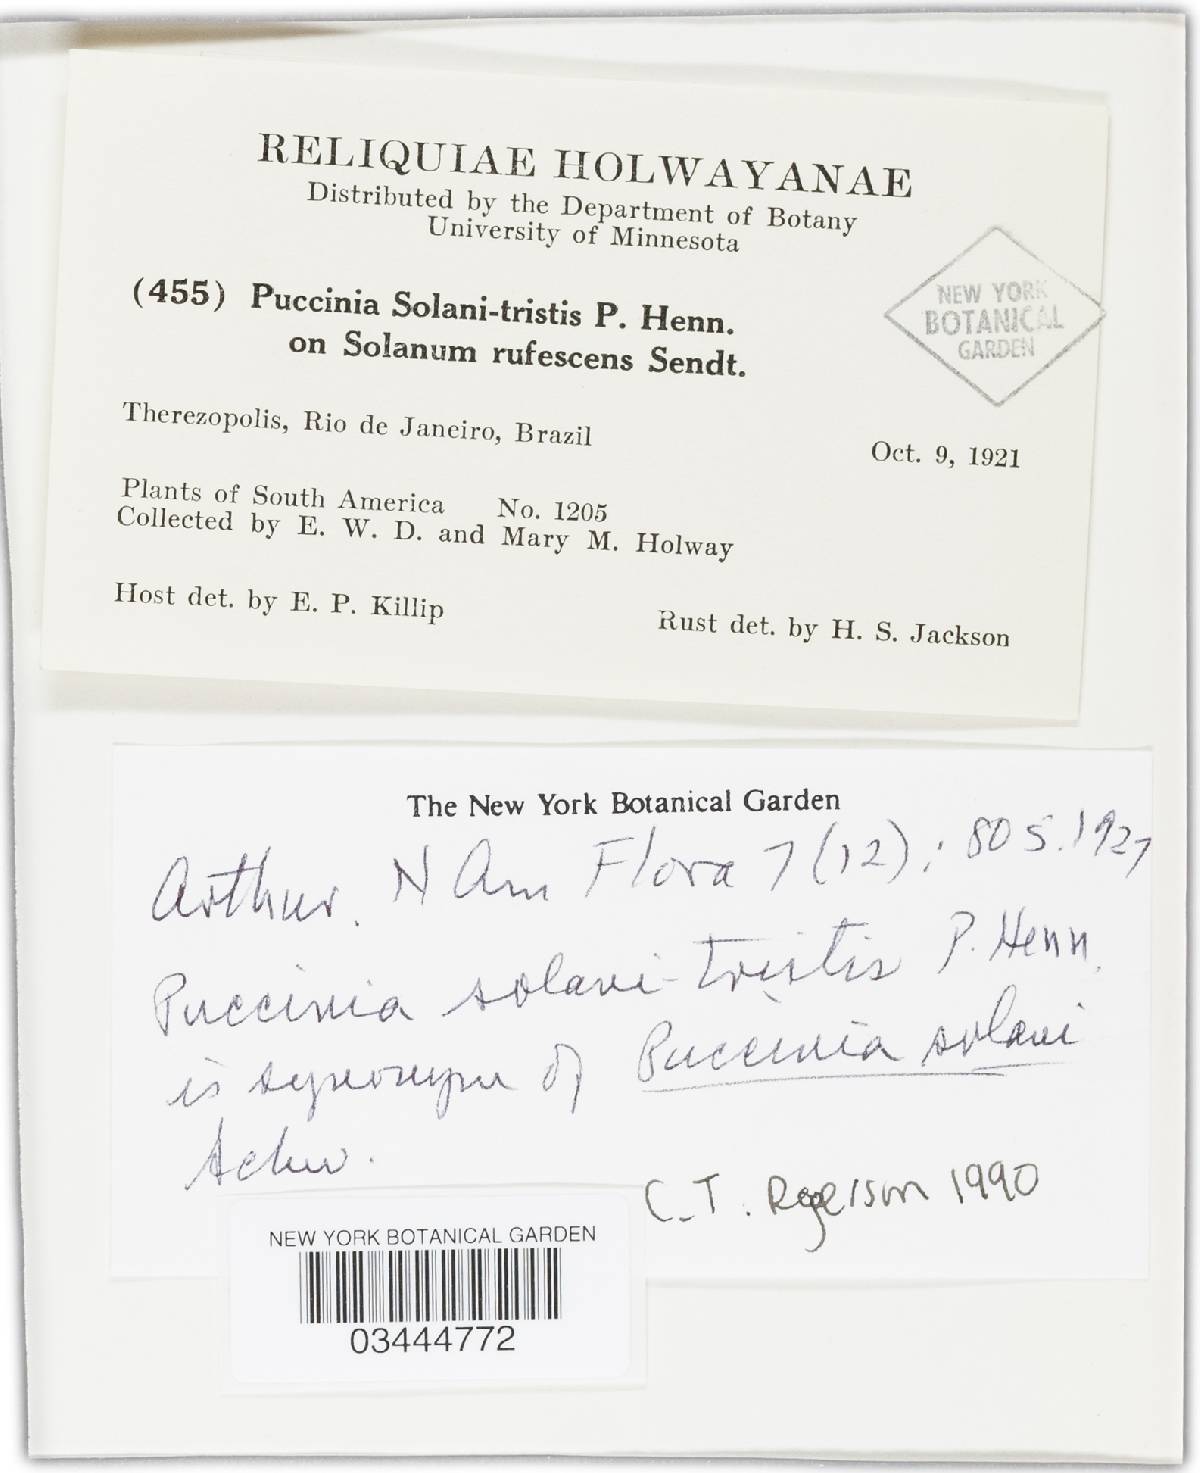 RELIQUIAE HOLWAYANAE
Distributed by the Department of Botany
University of Minnesota
(455) Puccinia Solani-tristis P. Henn.
on Solanum rufescens Sendt.
NEW YORK
BOTANICAL
GARDEN
Therezopolis, Rio de Janeiro, Brazil
Oct. 9, 1921
Plants of South America No. 1205
Collected by E. W. D. and Mary M. Holway
Host det. by E. P. Killip
Rust det. by H. S. Jackson
The New York Botanical Garden
Arthur. N Am Flora 7(12); 805. 1927
Puccinia solani-tristis P. Henn.
is synonym of Puccinia solani
Schw.
C. T. Rogerson 1990
NEW YORK BOTANICAL GARDEN
03444772